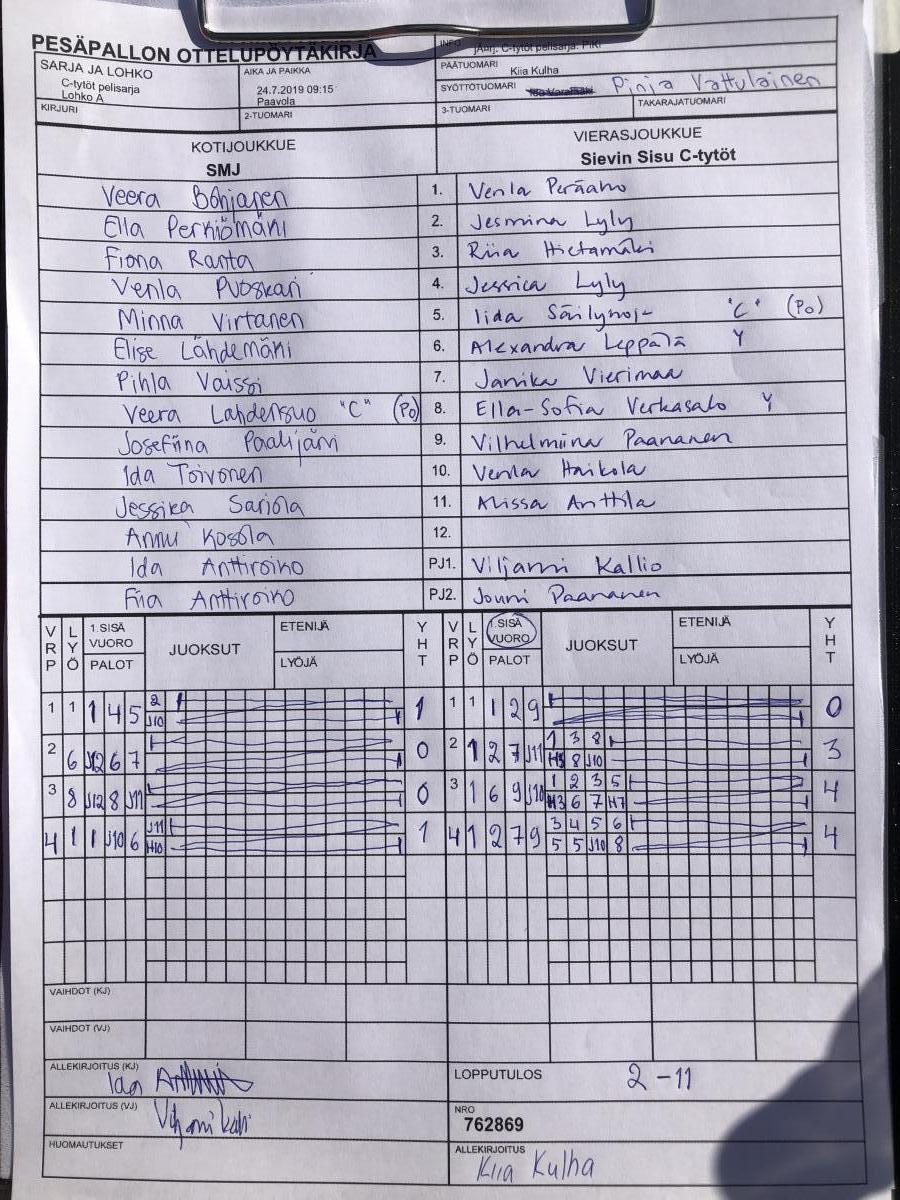 PESÄPALLON OTTELUPÖYTÄKIRJA
SARJA JA LOHKO
C-tytöt pelisarja
Lohko A
AIKA JA PAIKKA
24.7.2019 09:15
Paavola
INFO jAurj. C-tytöt pelisarja. PiKi
PÄÄTUOMARI
Kiia Kulha
SYÖTTÖTUOMARI Pinja Vattulainen
KIRJURI
2-TUOMARI
3-TUOMARI
TAKARAJATUOMARI
KOTIJOUKKUE
SMJ
VIERASJOUKKUE
Sievin Sisu C-tytöt
Veera Böhjanen 1. Venla Peräaho
Ella Perkiömäki 2. Jesmina Lyly
Fiona Ranta 3. Riia Hietamäki
Venla Puoskari 4. Jessica Lyly
Minna Virtanen 5. Iida "C" (Po)
Elise Lähdemäki 6. Alexandra Leppälä Y
Pihla Vaissi 7. Janika Vierimaa
Veera Lahdensuo "C" (Po) 8. Ella-Sofia Verkasalo Y
Josefiina Paalijärvi 9. Vilhelmiina Paananen
Ida Toivonen 10. Venla Haikola
Jessika Sariola 11. Alissa Anttila
Annu Kosola 12.
Ida Anttiroiko PJ1. Viljami Kallio
Fiia Anttiroiko PJ2. Jouni Paananen
VRP LYÖ 1.SISÄ VUORO PALOT JUOKSUT ETENIJÄ LYÖJÄ YHT VRP LYÖ 1.SISÄ VUORO PALOT JUOKSUT ETENIJÄ LYÖJÄ YHT
1 1 1 4 5 2 J10 1 1 1 1 2 9 0
2 6 J12 6 7 0 2 1 2 7 J11 1 3 8 H3 8 J10 3
3 8 J12 8 J11 0 3 1 6 9 J10 1 2 3 5 H3 6 7 H7 4
4 1 1 J10 6 J11 H10 1 4 1 2 7 9 3 4 5 6 5 5 J10 8 4
VAIHDOT (KJ)
VAIHDOT (VJ)
ALLEKIRJOITUS (KJ) Ida
LOPPUTULOS 2-11
ALLEKIRJOITUS (VJ)
NRO
762869
HUOMAUTUKSET
ALLEKIRJOITUS
Kiia Kulha